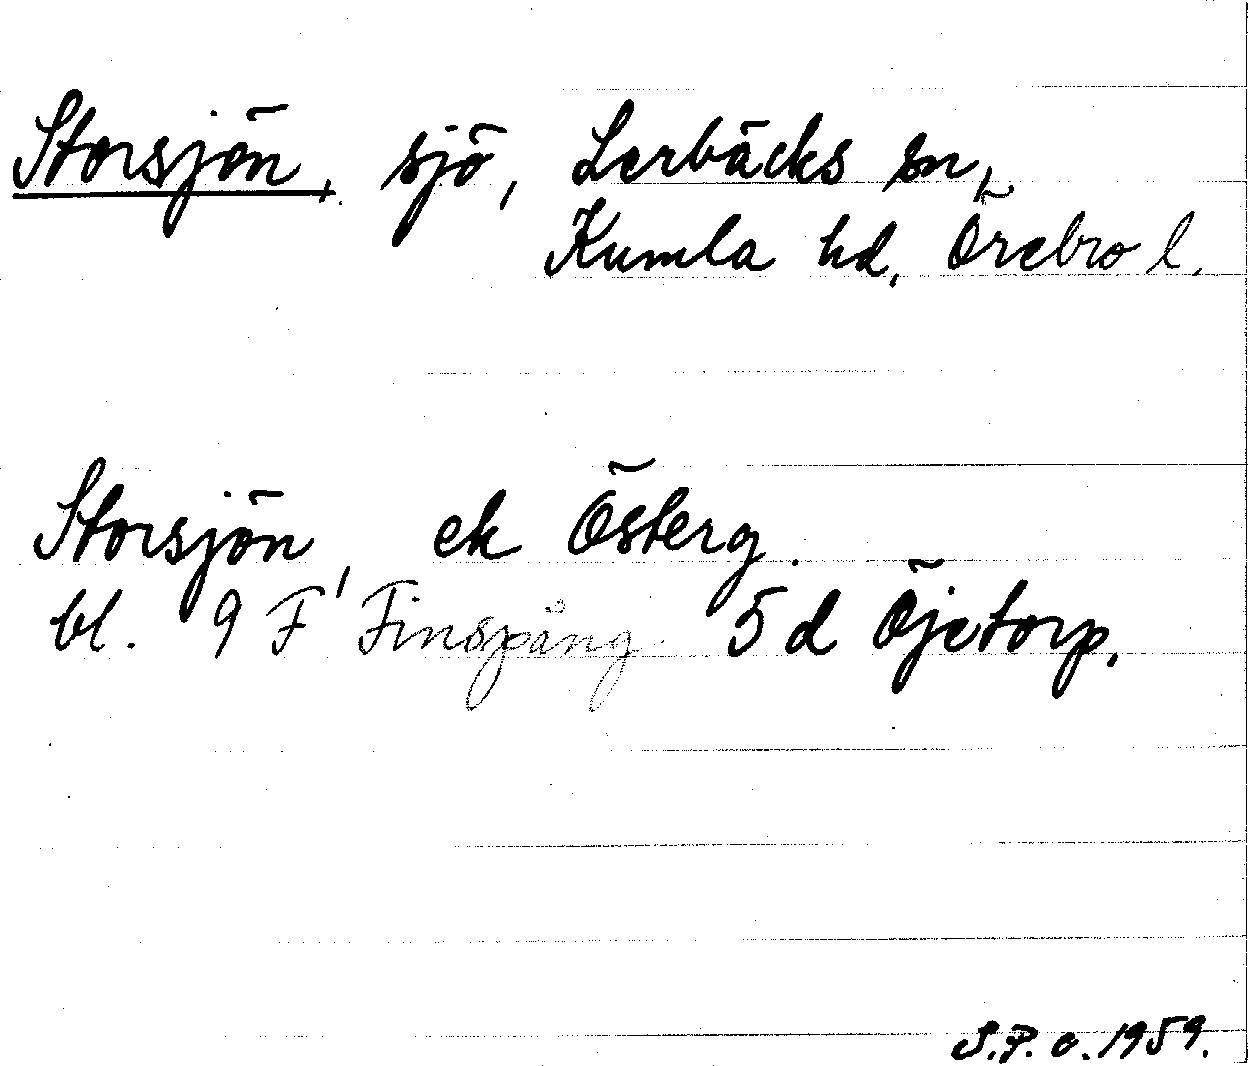 Storsjön, sjö, Lerbäcks sn,
Kumla hd, Örebro l.
Storsjön, ek Österg.
bl. 9 F Finspång 5 d Öjetorp.
S.P.o. 1959.